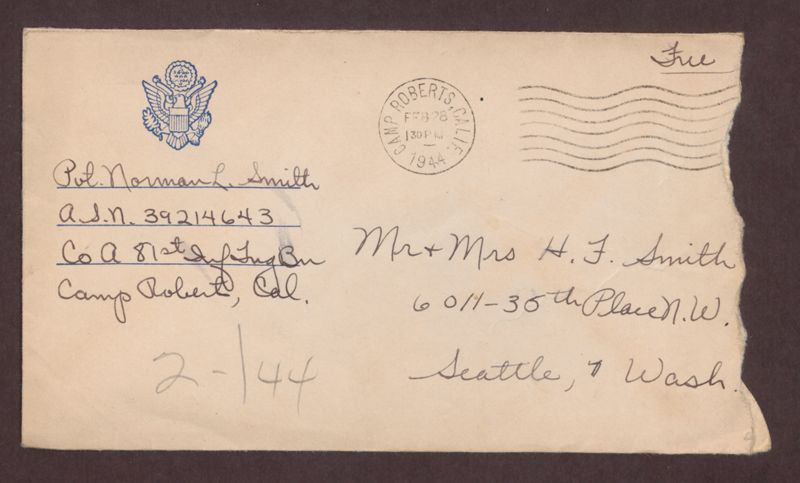 Free
CAMP ROBERTS, CALIF.
FEB 28
130 PM
1944
Pvt. Norman L. Smith
A.S.N. 39214643
Co A 81st Inf Tng Bn
Camp Robert, Cal.
Mr + Mrs H. F. Smith
6011-35th Place N.W.
Seattle, 7 Wash.
2-/44